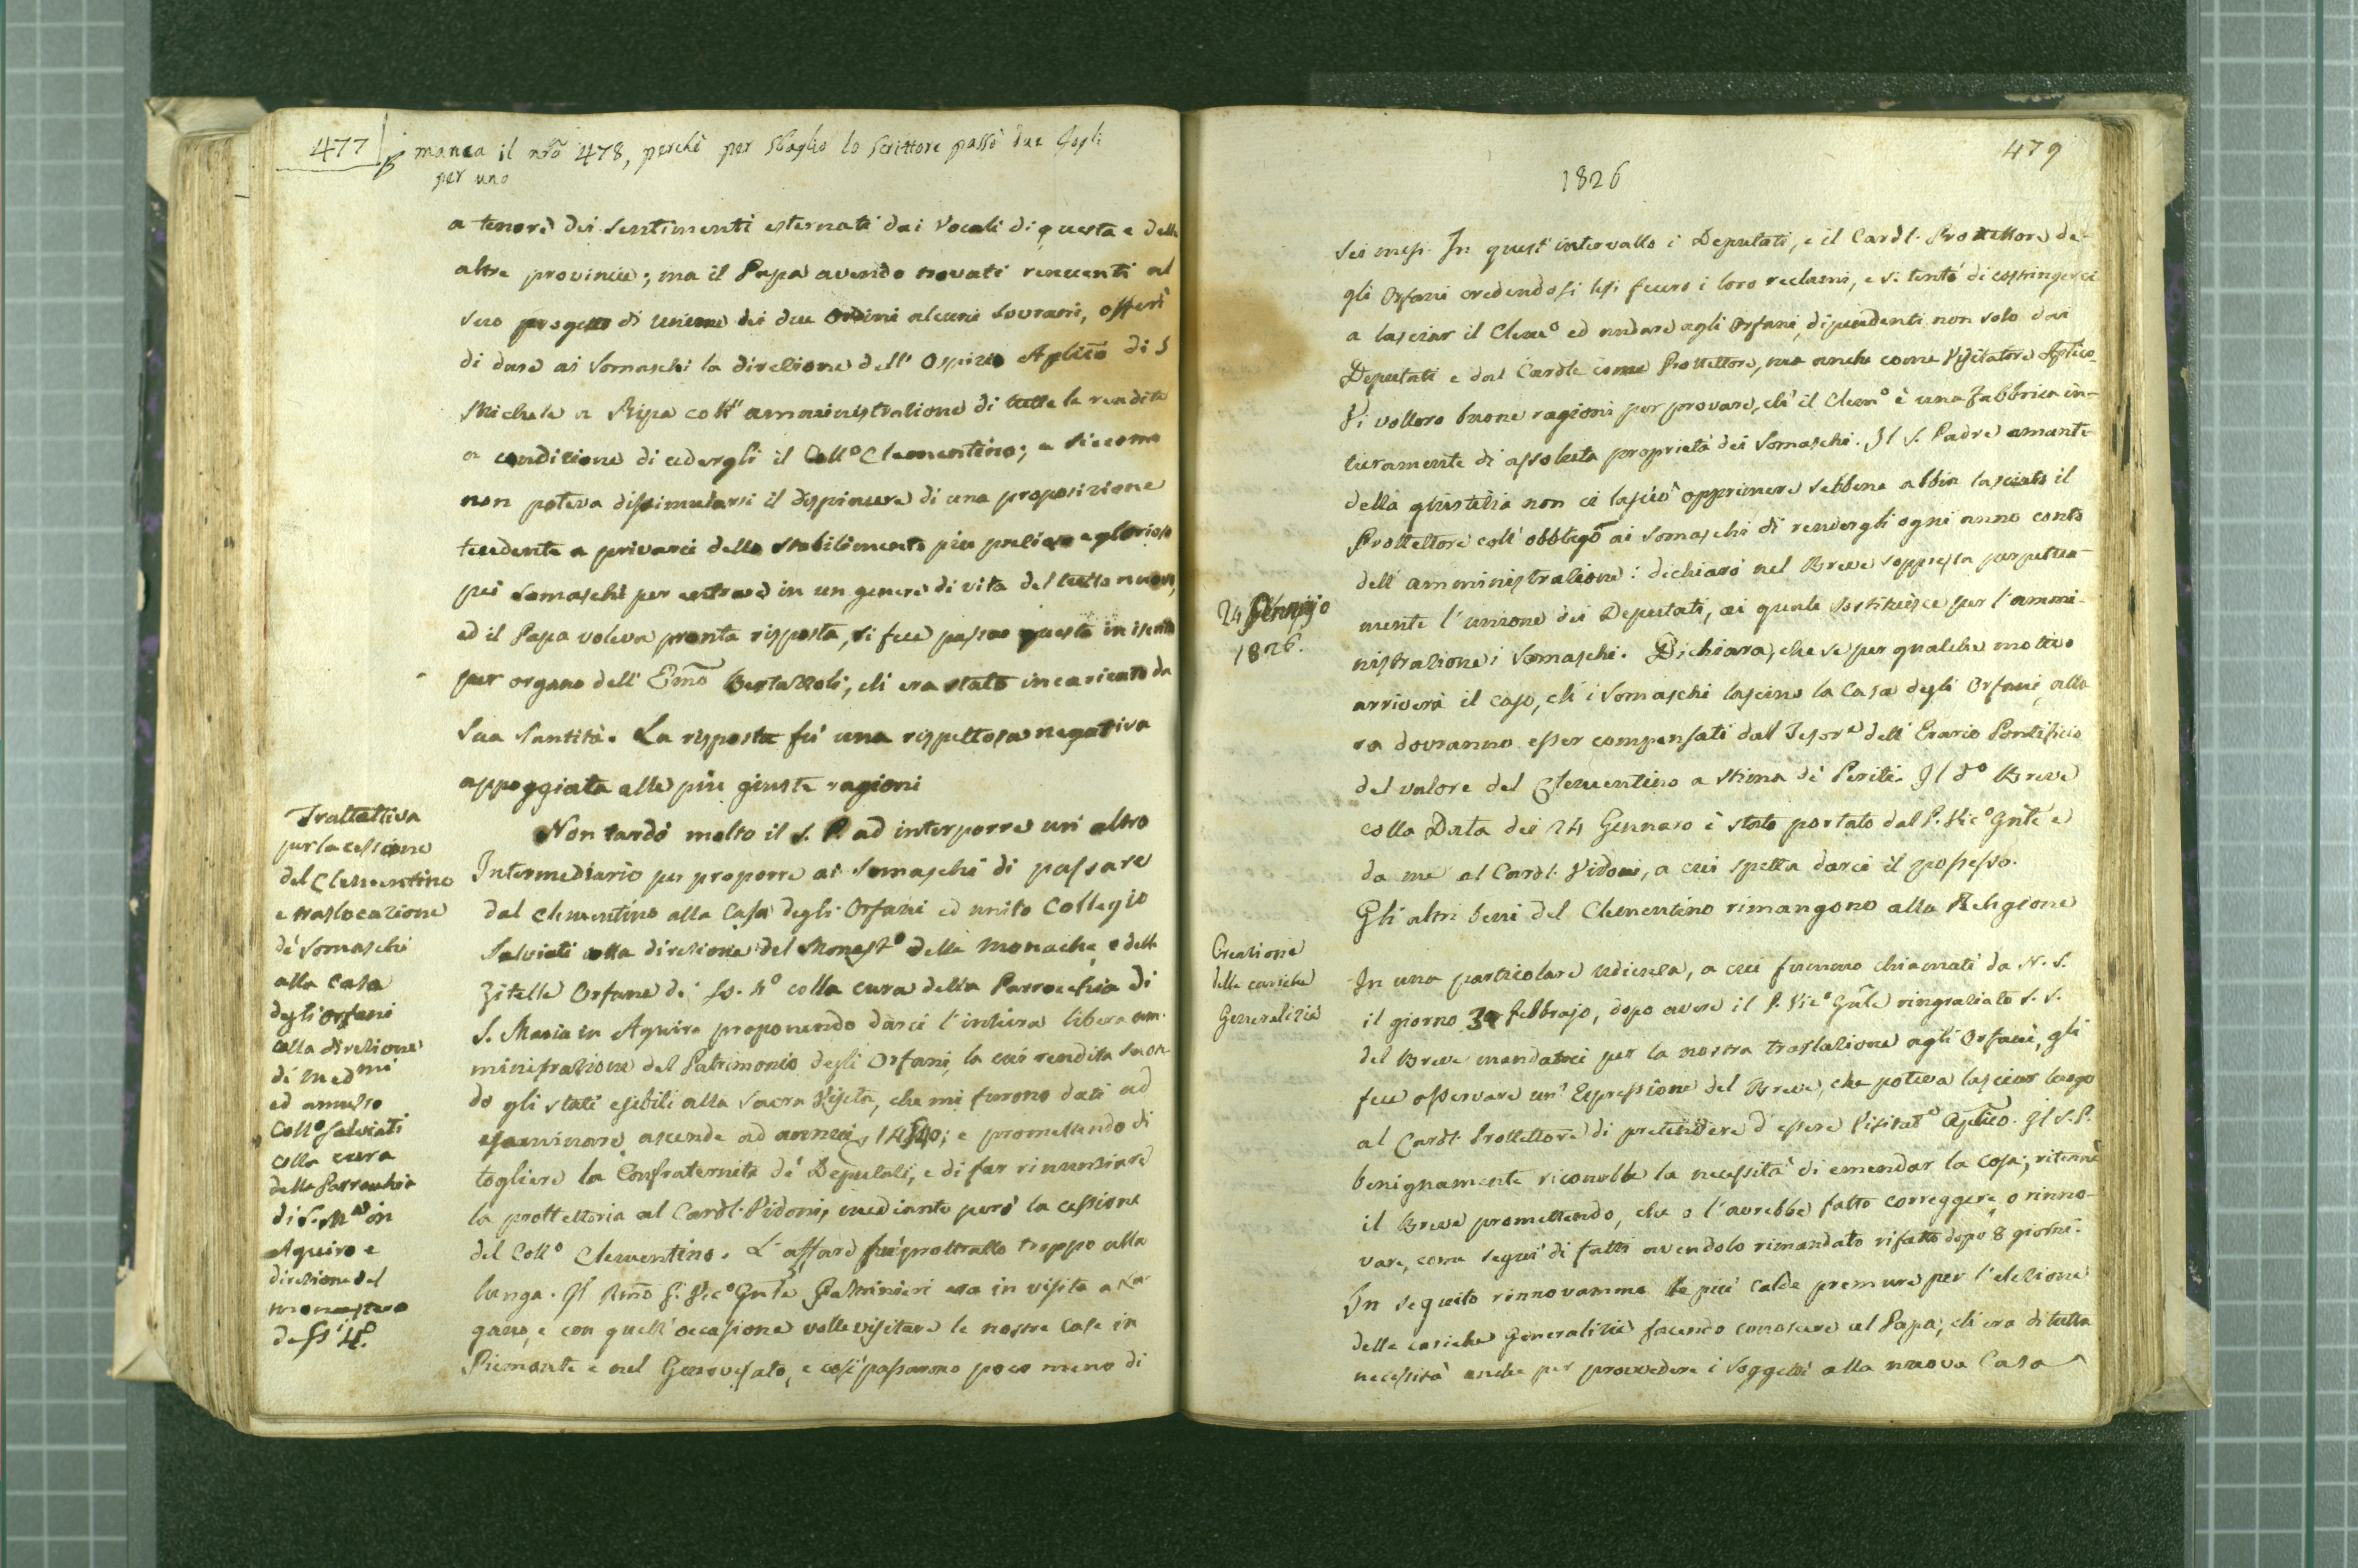 477
manca il nrõ 478, perchè per sbaglio lo Scrittore passò due fogli
per uno
a tenore dei sentimenti esternati dai Vocali di questa e delle
altre provincie; ma il Papa avendo trovati renuenti al
suo progetto di unione dei due Ordini alcuni Sovrani, offerì
di dare ai Somaschi la direzione dell' Ospizio Aplicõ di S
Michele a Ripa coll' amministrazione di tutte le rendite
a condizione di cedergli il Collº Clementino; e siccome
non poteva dissimularsi il dispiacere di una proposizione
tendente a privarci dello stabilimento più prezioso e glorioso
pei Somaschi per entrare in un genere di vita del tutto nuovo,
ed il Papa voleva pronta risposta, si fece passare questa in iscritto
per organo dell' Emõ Bertazzoli, ch' era stato incaricato da
Sua Santità. La risposta fù una rispettosa negativa
appoggiata alle più giuste ragioni
Trattativa
per la cessione
del Clementino
e traslocazione
de' Somaschi
alla Casa
degli Orfani
colla direzione
di medmi
ed annesso
Collº Salviati
colla cura
della Parrochia
di S. Mª in
Aquiro e
direzione del
monastero
de SSi 4º.
Non tardò molto il S. P. ad interporre un altro
Intermediario per proporre ai Somaschi di passare
dal Clementino alla Casa degli Orfani ed unito Collegio
Salviati colla direzione del Monastº delle Monache, e delle
Zitelle Orfane di SS. 4º colla cura della Parrocchia di
S. Maria in Aquiro proponendo darci l'intiera libera am-
ministrazione del Patrimonio degli Orfani, la cui rendita secon-
do gli stati esibiti alla Sacra Visita, che mi furono dati ad
esaminare ascende ad annui; e promettendo di
togliere la Confraternita de' Deputati, e di far rinunziare
la protettoria al Cardl. Vidoni, mediante però la cessione
del Collº Clementino. L'affare fu protratto troppo alla
lunga. Il Rmõ P. Vicº Gnle Paltrinieri era in visita a Lu-
gano, e con quell' occasione volle visitare le nostre Case in
Piemonte e nel Genovesato, e così passarono poco meno di
479
1826
sei mesi. In quest' intervallo i Deputati, e il Cardl. Protettore de-
gli Orfani credendosi lesi fecero i loro reclami, e si tentò di costringerci
a lasciar il Clemº ed andare agli Orfani, dipendenti non solo dai
Deputati e dal Cardle come Protettore, ma anche come Visitatore Aplico.
Vi vollero buone ragioni per provare, ch' il Clemº è una fabbrica in-
tieramente di assoluta proprietà dei Somaschi. Il S. Padre amante
della giustizia non ci lasciò opprimere sebbene abbia lasciato il
Protettore coll' obbligõ ai Somaschi di rendergli ogni anno conto
dell' amministrazione: dichiarò nel Breve soppressa perpetua-
24 Gennajo
1826.
mente l'unione dei Deputati, ai quali sostituisce per l'ammi-
nistrazione i Somaschi. Dichiara, che se per qualche motivo
arriverà il caso, ch' i Somaschi lascino la Casa degli Orfani, allo-
ra dovranno esser compensati dal Tesore dell' Erario Pontificio
del valore del Clementino a stima di Periti. Il dº Breve
colla Data dei 24 Gennaro è stato portato dal P. Vicº Gnle e
da me al Cardl. Vidoni, a cui spetta darci il possesso.
Gli altri beni del Clementino rimangono alla Religione
Creazione
delle cariche
Generalizie
In una particolare udienza, a cui fummo chiamati da N. S.
il giorno febbrajo, dopo avere il P. Vicº Gnle ringraziato S. S.
del Breve mandatoci per la nostra traslazione agli Orfani, gli
fece osservare un' Espressione del Breve, che poteva lasciar luogo
al Cardl. Protettore di pretendere d'essere Visitatº Aplico. Il S. P.
benignamente riconobbe la necessità di emendar la cosa; ritenne
il Breve promettendo, che o l'avrebbe fatto correggere, o rinno-
vare, come seguì di fatti avendolo rimandato rifatto dopo 8 giorni.
In seguito rinnovammo le più calde premure per l'elezione
delle cariche Generalizie facendo conoscere al Papa, ch' era di tutta
necessità anche per provvedere i Soggetti alla nuova Casa